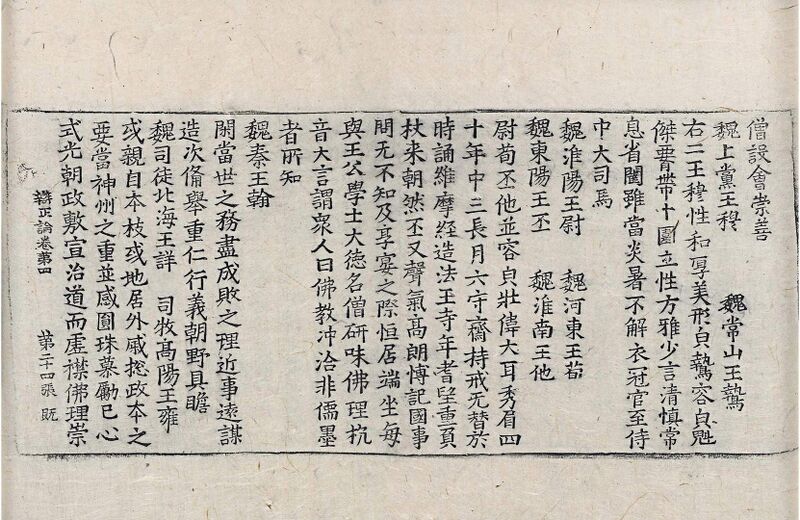 僧設會崇善
魏上黨王穆　魏常山王鷙
右二王穆性和厚美形皃鷙容皃魁
傑𦝫帶十圍立性方雅少言清慎常
息省闥雖當炎暑不解衣冠官至侍
中大司馬
魏淮陽王尉　魏河東王荀
魏東陽王丕　魏淮南王他
尉荀丕他並容皃壯偉大耳秀眉四
十年中三長月六守齋持戒无替於
時誦維摩経造法王寺年耆望重負
杖来朝然丕又聲氣高朗慱記國事
問无不知及享宴之際恒居端坐每
與王公學士大徳名僧研味佛理抗
音大言謂衆人曰佛教沖洽非儒墨
者所知
魏秦王翰
閑當世之務盡成敗之理近事遠謀
造次俻舉重仁行義朝野具瞻
魏司徒北海王詳　司牧高陽王雍
或親自本枝或地居外戚揔政本之
要當神州之重並感圓珠慕勵己心
式光朝政敷宣治道而虛襟佛理崇
辯正論卷第四　第二十四張 旣